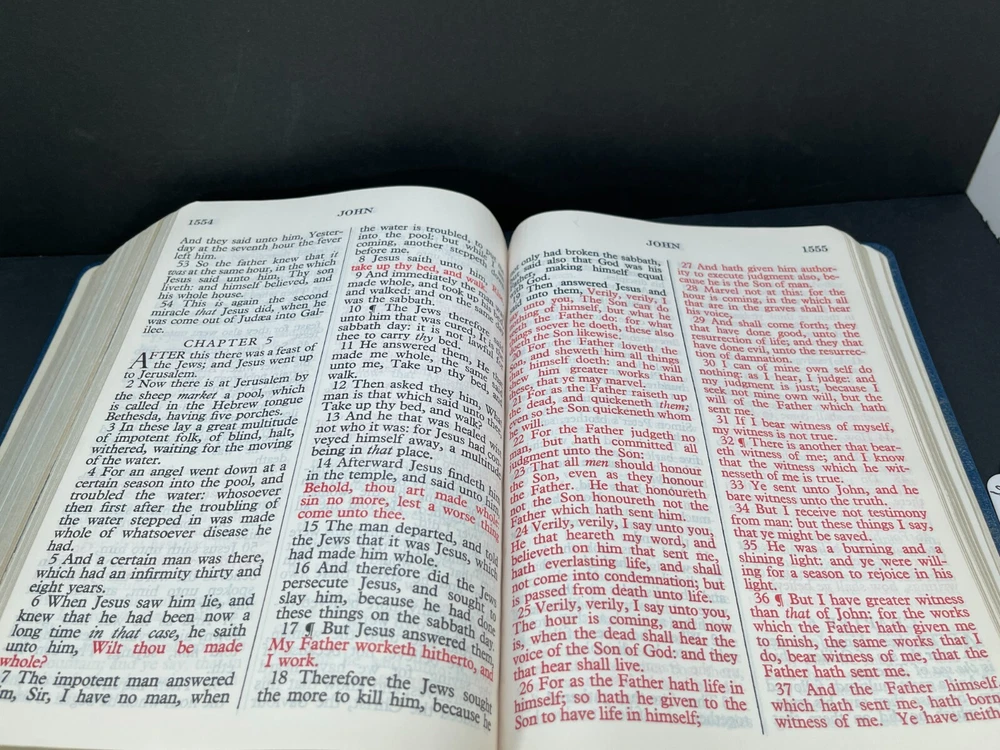 1554
JOHN
And they said unto him, Yester-
day at the seventh hour the fever
left him.
53 So the father knew that it
was at the same hour, in the which
Jesus said unto him, Thy son
liveth: and himself believed, and
his whole house.
54 This is again the second
miracle that Jesus did, when he
was come out of Judæa into Gal-
ilee.
CHAPTER 5
AFTER this there was a feast of
the Jews; and Jesus went up
to Jerusalem.
2 Now there is at Jerusalem by
the sheep market a pool, which
is called in the Hebrew tongue
Bethesda, having five porches.
3 In these lay a great multitude
of impotent folk, of blind, halt,
withered, waiting for the moving
of the water.
4 For an angel went down at a
certain season into the pool, and
troubled the water: whosoever
then first after the troubling of
the water stepped in was made
whole of whatsoever disease he
had.
5 And a certain man was there,
which had an infirmity thirty and
eight years.
6 When Jesus saw him lie, and
knew that he had been now a
long time in that case, he saith
unto him, Wilt thou be made
whole?
7 The impotent man answered
m, Sir, I have no man, when
the water is troubled, to
into the pool: but while
coming, another steppeth
before me.
8 Jesus saith unto him,
take up thy bed, and walk.
9 And immediately the man
made whole, and took up his
walked: and on the same
was the sabbath.
10 ¶ The Jews therefore
unto him that was cured, It is
sabbath day: it is not lawful
thee to carry thy bed.
11 He answered them, He that
made me whole, the same
me, Take up thy bed, and
walk.
12 Then asked they him, What
man is that which said unto thee,
Take up thy bed, and walk?
13 And he that was healed wist
not who it was: for Jesus had con-
veyed himself away, a multitude
being in that place.
14 Afterward Jesus findeth him
in the temple, and said unto him,
Behold, thou art made whole:
sin no more, lest a worse thing
come unto thee.
15 The man departed, and told
the Jews that it was Jesus, which
had made him whole.
16 And therefore did the Jews
persecute Jesus, and sought to
slay him, because he had done
these things on the sabbath day.
17 ¶ But Jesus answered them,
My Father worketh hitherto, and
I work.
18 Therefore the Jews sought
the more to kill him, because he
JOHN
1555
only had broken the sabbath,
said also that God was his
Father, making himself equal
God.
19 Then answered Jesus and
unto them, Verily, verily, I
unto you, The Son can do
nothing of himself, but what he
the Father do: for what
things soever he doeth, these also
the Son likewise.
20 For the Father loveth the
Son, and sheweth him all things
that himself doeth: and he will
shew him greater works than
these, that ye may marvel.
21 For as the Father raiseth up
the dead, and quickeneth them;
even so the Son quickeneth whom
he will.
22 For the Father judgeth no
man, but hath committed all
judgment unto the Son:
23 That all men should honour
the Son, even as they honour
the Father. He that honoureth
not the Son honoureth not the
Father which hath sent him.
24 Verily, verily, I say unto you,
He that heareth my word, and
believeth on him that sent me,
hath everlasting life, and shall
not come into condemnation; but
is passed from death unto life.
25 Verily, verily, I say unto you,
The hour is coming, and now
is, when the dead shall hear the
voice of the Son of God: and they
that hear shall live.
26 For as the Father hath life in
himself; so hath he given to the
Son to have life in himself;
27 And hath given him author-
ity to execute judgment also, be-
cause he is the Son of man.
28 Marvel not at this: for the
hour is coming, in the which all
that are in the graves shall hear
his voice,
29 And shall come forth; they
that have done good, unto the
resurrection of life; and they that
have done evil, unto the resurrec-
tion of damnation.
30 I can of mine own self do
nothing: as I hear, I judge: and
my judgment is just; because I
seek not mine own will, but the
will of the Father which hath
sent me.
31 If I bear witness of myself,
my witness is not true.
32 ¶ There is another that bear-
eth witness of me; and I know
that the witness which he wit-
nesseth of me is true.
33 Ye sent unto John, and he
bare witness unto the truth.
34 But I receive not testimony
from man: but these things I say,
that ye might be saved.
35 He was a burning and a
shining light: and ye were will-
ing for a season to rejoice in his
light.
36 ¶ But I have greater witness
than that of John: for the works
which the Father hath given me
to finish, the same works that I
do, bear witness of me, that the
Father hath sent me.
37 And the Father himself,
which hath sent me, hath born
witness of me. Ye have neith